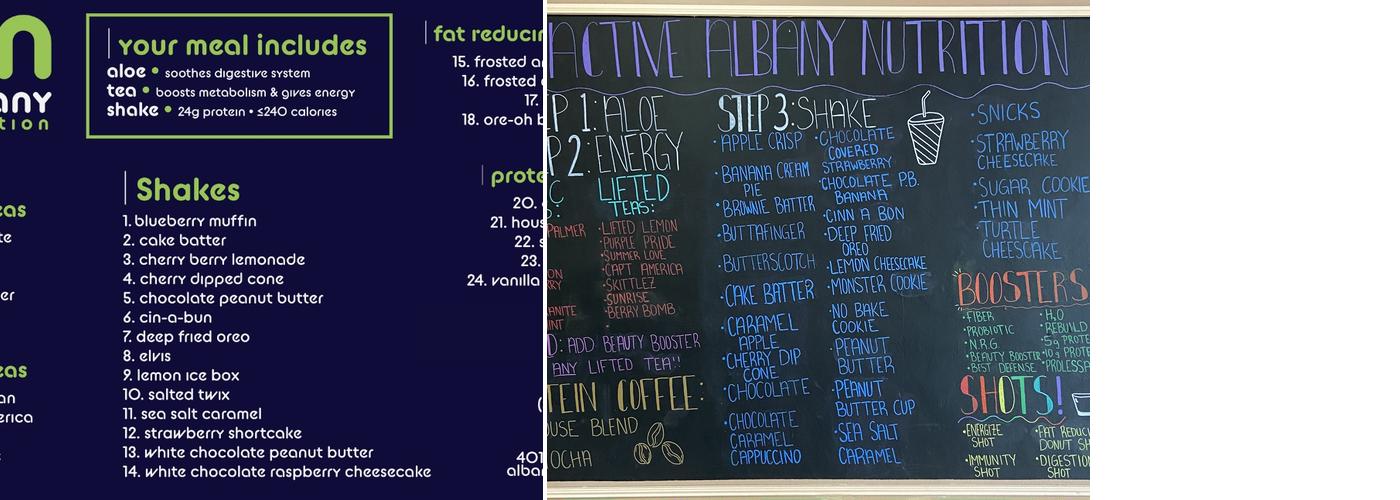 any
tion
your meal includes
aloe • soothes digestive system
tea • boosts metabolism & gives energy
shake • 24g protein • ≤240 calories
fat
15. frosted
16. frosted
17.
18. ore-oh
Shakes
1. blueberry muffin
2. cake batter
3. cherry berry lemonade
4. cherry dipped cone
5. chocolate peanut butter
6. cin-a-bun
7. deep fried oreo
8. elvis
9. lemon ice box
10. salted twix
11. sea salt caramel
12. strawberry shortcake
13. white chocolate peanut butter
14. white chocolate raspberry cheesecake
20.
21.
22.
23.
24. vanilla
401
ACTIVE ALBANY NUTRITION
1: ALOE
2: ENERGY
LIFTED
TEAS:
PALMER
·LIFTED LEMON
·PURPLE PRIDE
·SUMMER LOVE
·CAPT AMERICA
·SKITTLEZ
·SUNRISE
·BERRY BOMB
ADD BEAUTY BOOSTER
ANY LIFTED TEA!!
COFFEE:
BLEND
STEP 3: SHAKE
·APPLE CRISP
·BANANA CREAM
PIE
·BROWNIE BATTER
·BUTTAFINGER
·BUTTERSCOTCH
·CAKE BATTER
·CARAMEL
APPLE
·CHERRY DIP
CONE
·CHOCOLATE
·CHOCOLATE
CARAMEL
CAPPUCCINO
·CHOCOLATE
COVERED
STRAWBERRY
·CHOCOLATE P.B.
BANANA
·CINN A BON
·DEEP FRIED
OREO
·LEMON CHEESECAKE
·MONSTER COOKIE
·NO BAKE
COOKIE
·PEANUT
BUTTER
·PEANUT
BUTTER CUP
·SEA SALT
CARAMEL
·SNICKS
·STRAWBERRY
CHEESECAKE
·SUGAR COOKIE
·THIN MINT
·TURTLE
CHEESCAKE
BOOSTERS
·FIBER
·PROBIOTIC
·N.R.G.
·BEAUTY BOOSTER
·BEST DEFENSE
·H2O
·REBUILD
·5g
·10g
SHOTS!
·ENERGIZE
SHOT
·IMMUNITY
SHOT
·FAT
DONUT
SHOT